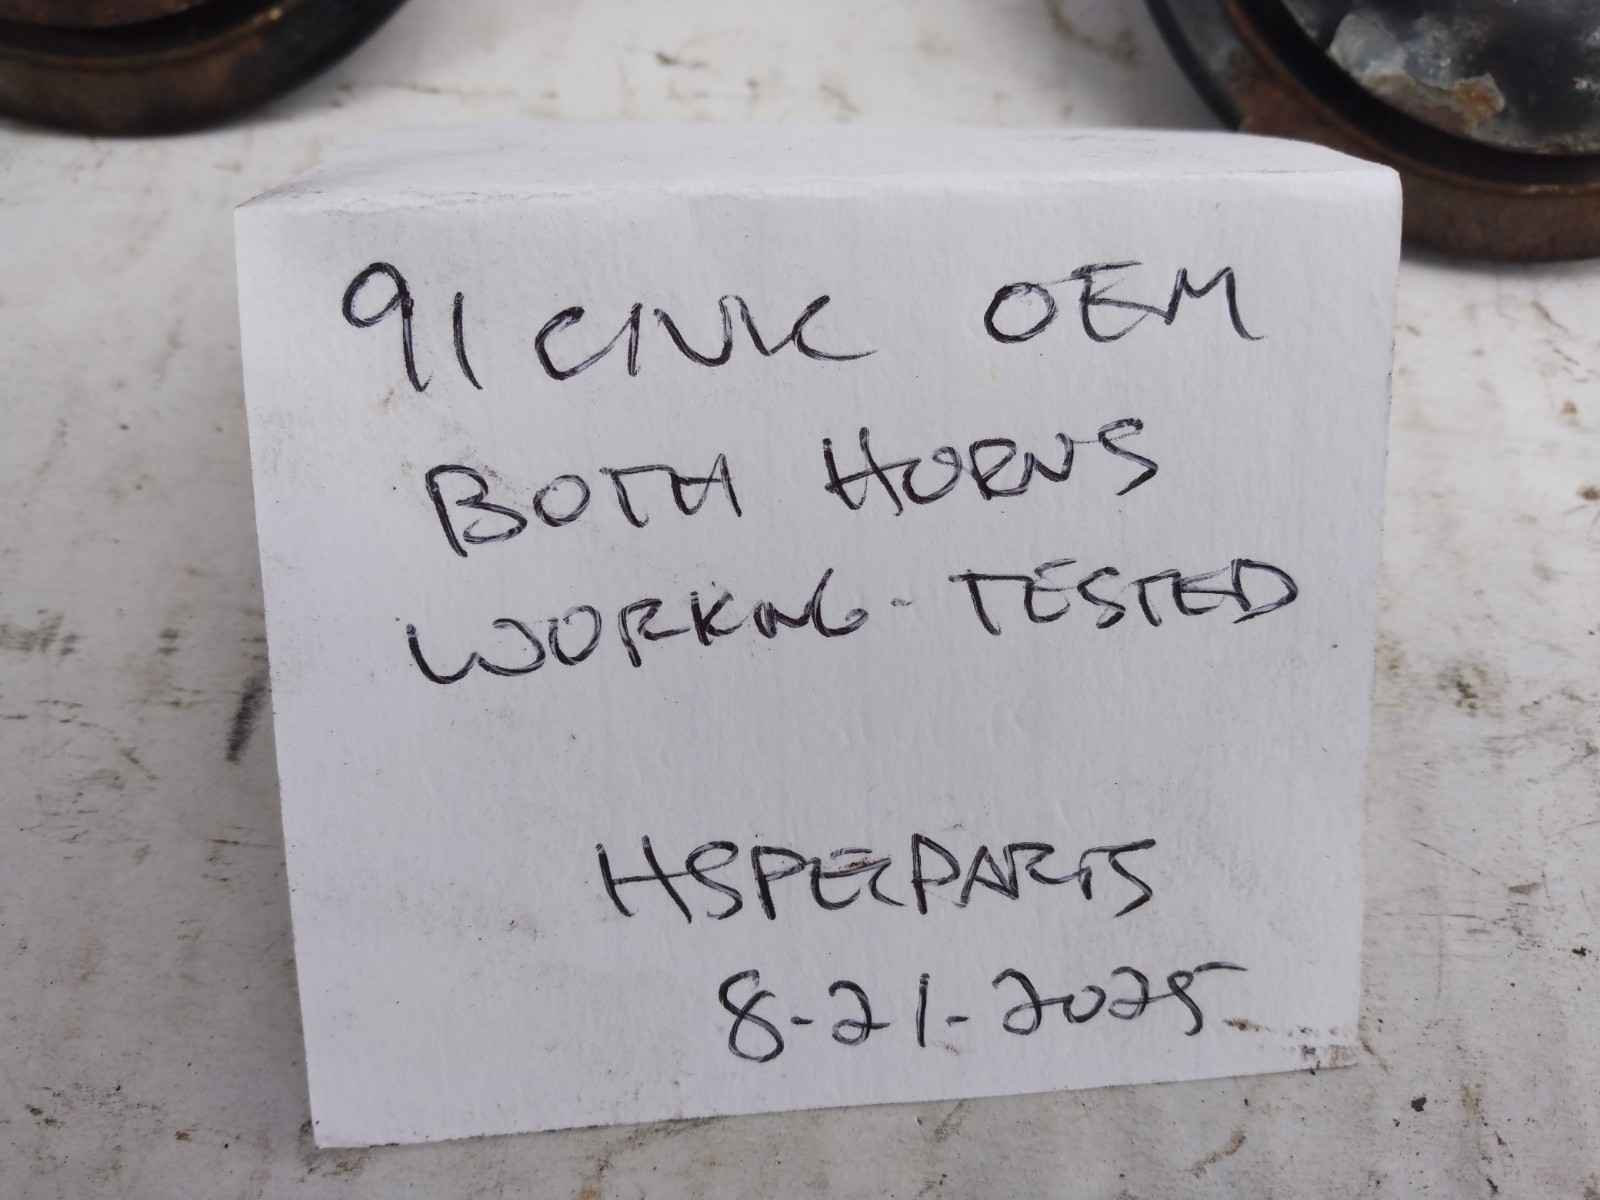 91 CIVIC OEM
BOTH HORNS
WORKING - TESTED
HSPECPARTS
8-21-2025